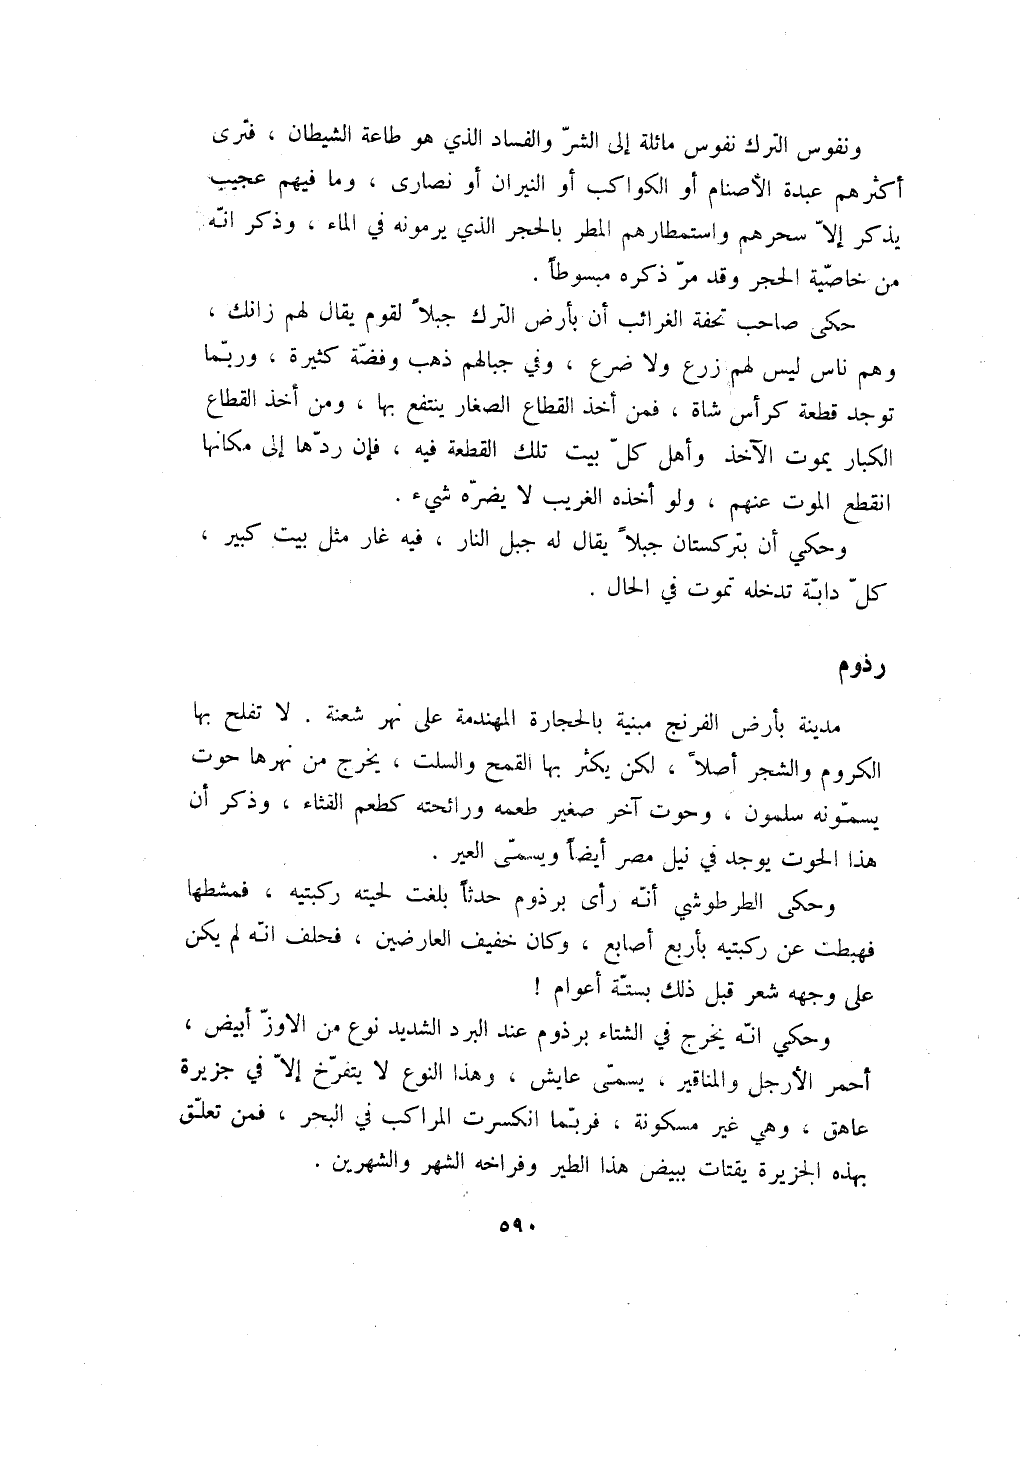 ونفوس الترك نفوس مائلة إلى الشرّ والفساد الذي هو طاعة الشيطان ، فترى
أكثرهم عبدة الأصنام أو الكواكب أو النيران أو نصارى ، وما فيهم عجيب
يذكر إلاّ سحرهم واستمطارهم المطر بالحجر الذي يرمونه في الماء ، وذكر انّه
من خاصّية الحجر وقد مرّ ذكره مبسوطاً .
حكى صاحب تحفة الغرائب أن بأرض الترك جبلاً لقوم يقال لهم زانك ،
وهم ناس ليس لهم زرع ولا ضرع ، وفي جبالهم ذهب وفضّة كثيرة ، وربّما
توجد قطعة كرأس شاة ، فمن أخذ القطاع الصغار ينتفع بها ، ومن أخذ القطاع
الكبار يموت الآخذ وأهل كلّ بيت تلك القطعة فيه ، فإن ردّها إلى مكانها
انقطع الموت عنهم ، ولو أخذه الغريب لا يضرّه شيء .
وحكي أن بتركستان جبلاً يقال له جبل النار ، فيه غار مثل بيت كبير ،
كلّ دابّة تدخله تموت في الحال .
رذوم
مدينة بأرض الفرنج مبنية بالحجارة المهندمة على نهر شعنة . لا تفلح بها
الكروم والشجر أصلاً ، لكن يكثر بها القمح والسلت ، يخرج من نهرها حوت
يسمّونه سلمون ، وحوت آخر صغير طعمه ورائحته كطعم القثاء ، وذكر أن
هذا الحوت يوجد في نيل مصر أيضاً ويسمّى العير .
وحكى الطرطوشي أنّه رأى برذوم حدثاً بلغت لحيته ركبتيه ، فمشطها
فهبطت عن ركبتيه بأربع أصابع ، وكان خفيف العارضين ، فحلف انّه لم يكن
على وجهه شعر قبل ذلك بستّة أعوام !
وحكي انّه يخرج في الشتاء برذوم عند البرد الشديد نوع من الاوزّ أبيض ،
أحمر الأرجل والمناقير ، يسمّى عايش ، وهذا النوع لا يتفرّخ إلاّ في جزيرة
عاهق ، وهي غير مسكونة ، فربّما انكسرت المراكب في البحر ، فمن تعلّق
بهذه الجزيرة يقتات ببيض هذا الطير وفراخه الشهر والشهرين .
٥٩٠